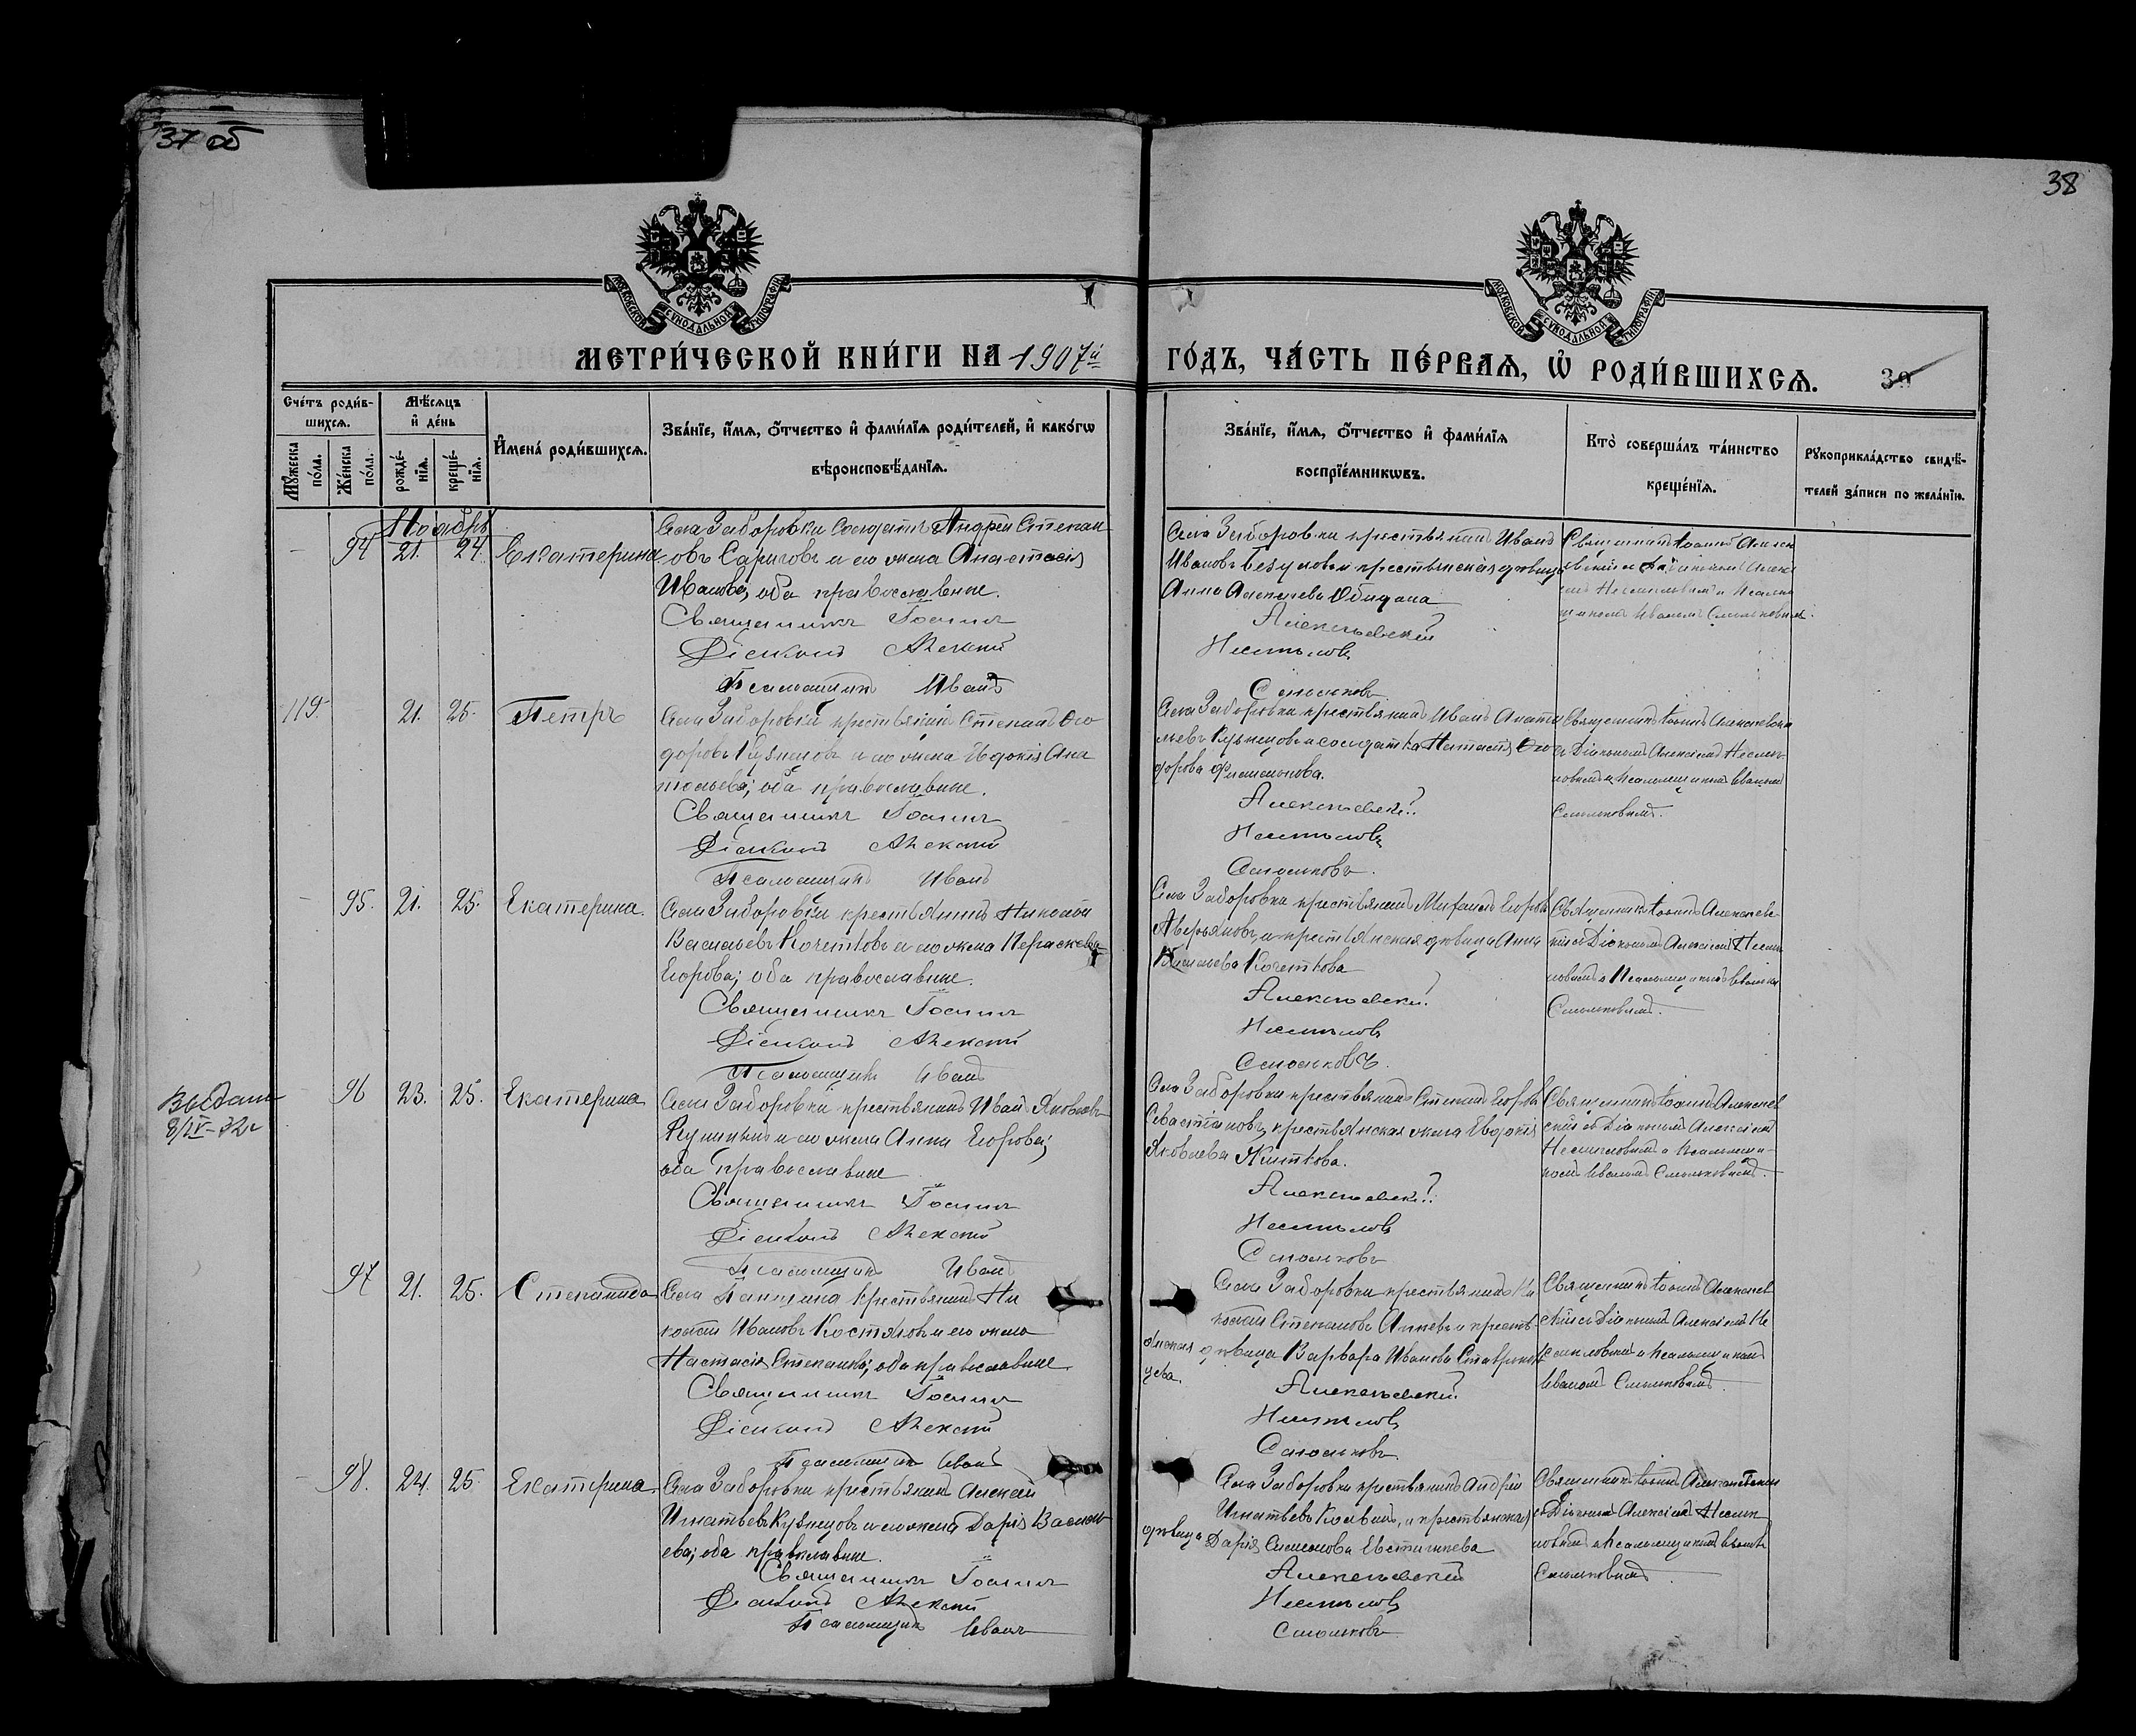 37 об
38
МОСКОВСКОЙ СѴНОДАЛЬНОЙ ТИПОГРАФІИ
МОСКОВСКОЙ СѴНОДАЛЬНОЙ ТИПОГРАФІИ
МЕТРИ́ЧЕСКОЙ КНИ́ГИ НА 1907й
ГО́ДЪ, ЧА́СТЬ ПЕ́РВАѦ, Ѽ РОДИ́ВШИХСѦ.
Сче́тъ роди́в-
шихсѧ.
Мꙋжеска по́ла.
Же́нска по́ла.
Мѣ́сѧцъ
и҆ де́нь
рожде́-
нїѧ.
креще́-
нїѧ.
И҆мена̀ роди́вшихсѧ.
Зва́нїе, и҆́мѧ, ѻ҆́тчество и҆ фами́лїѧ роди́телей, и҆ како́гѡ
вѣроисповѣ́данїѧ.
Зва́нїе, и҆́мѧ, ѻ҆́тчество и҆ фами́лїѧ
воспрїе́мникѡвъ.
Кто̀ соверша́лъ та́инство
креще́нїѧ.
Рꙋкоприкла́дство свидѣ́-
телей за́писи по жела́нїю.
Ноябрь
94 21. 24. Екатерина
Села Заборовки солдатъ Андрей Степан
овъ Саричовъ и его жена Анастасія
Иванова, оба православные.
Священникъ Іоаннъ
Діаконъ Алексій
Псаломщикъ Иванъ
Села Заборовки крестьянинъ Иванъ
Ивановъ Безуковъ и крестьянская дѣвица
Анна Алексѣева
Алексѣевскій
Несмѣловъ
Смольковъ
Священникъ Іоаннъ Алексѣ
евскій съ Діакономъ Алексі
емъ Несмѣловымъ и Псалом
щикомъ Иваномъ Смольковымъ.
119 21. 25. Петръ
Села Заборовки крестьянинъ Степанъ Ѳео
доровъ Кузнецовъ и его жена Евдокія Ана
тольева; оба православные.
Священникъ Іоаннъ
Діаконъ Алексій
Псаломщикъ Иванъ
Села Заборовки крестьянинъ Иванъ Анато
льевъ Кузнецовъ и солдатка Настасія Ѳео
дорова Филимонова.
Алексѣевскій
Несмѣловъ
Смольковъ.
Священникъ Іоаннъ Алексѣевскій
съ Діакономъ Алексіемъ Несмѣ-
ловымъ и Псаломщикомъ Иваномъ
Смольковымъ.
95. 21. 25. Екатерина.
Села Заборовки крестьянинъ Николай
Васильевъ Кочетковъ и его жена Параскева
Егорова; оба православные.
Священникъ Іоаннъ
Діаконъ Алексій
Псаломщикъ Иванъ
Села Заборовки крестьянинъ Михаилъ Егоровъ
Аверьяновъ, и крестьянская дѣвица Анна
Васильева Кочеткова
Алексѣевскій
Несмѣловъ
Смольковъ.
Священникъ Іоаннъ Алексѣевс-
кій съ Діакономъ Алексіемъ Несмѣ
ловымъ и Псаломщикомъ Иваномъ
Смольковымъ.
Выдана
8/IV-32г
96 23. 25. Екатерина
Села Заборовки крестьянинъ Иванъ Яковлевъ
и его жена Анна Егорова;
оба православные
Священникъ Іоаннъ
Діаконъ Алексій
Псаломщикъ Иванъ
Села Заборовки крестьянинъ Степанъ Егоровъ
Севастіановъ, крестьянская жена Евдокія
Яковлева Житкова.
Алексѣевскій
Несмѣловъ
Смольковъ
Священникъ Іоаннъ Алексѣев
скій съ Діакономъ Алексіемъ
Несмѣловымъ и Псаломщи-
комъ Иваномъ Смольковымъ.
97 21. 25. Степанида
Села Паншина крестьянинъ Ни
колай Ивановъ Костяновъ и его жена
Настасія Степанова; оба православные.
Священникъ Іоаннъ
Діаконъ Алексій
Псаломщикъ Иванъ
Села Заборовки крестьянинъ Ни
колай Степановъ Аникевъ и кресть
янская дѣвица Варвара Иванова
Алексѣевскій
Несмѣловъ
Смольковъ
Священникъ Іоаннъ Алексѣев
скій съ Діакономъ Алексіемъ Не
смѣловымъ и Псаломщикомъ
Иваномъ Смольковымъ.
98. 24. 25. Екатерина.
Села Заборовки крестьянинъ Алексѣй
Игнатьевъ Кузнецовъ и его жена Дарія Василь
ева; оба православные.
Священникъ Іоаннъ
Діаконъ Алексій
Псаломщикъ Иванъ
Села Заборовки крестьянинъ Андрей
Игнатьевъ и крестьянская
дѣвица Дарія Симеонова Евстигнеева
Алексѣевскій
Несмѣловъ
Смольковъ
Священникъ Іоаннъ Алексѣевскій
съ Діакономъ Алексіемъ Несмѣ
ловымъ и Псаломщикомъ Иваномъ
Смольковымъ.